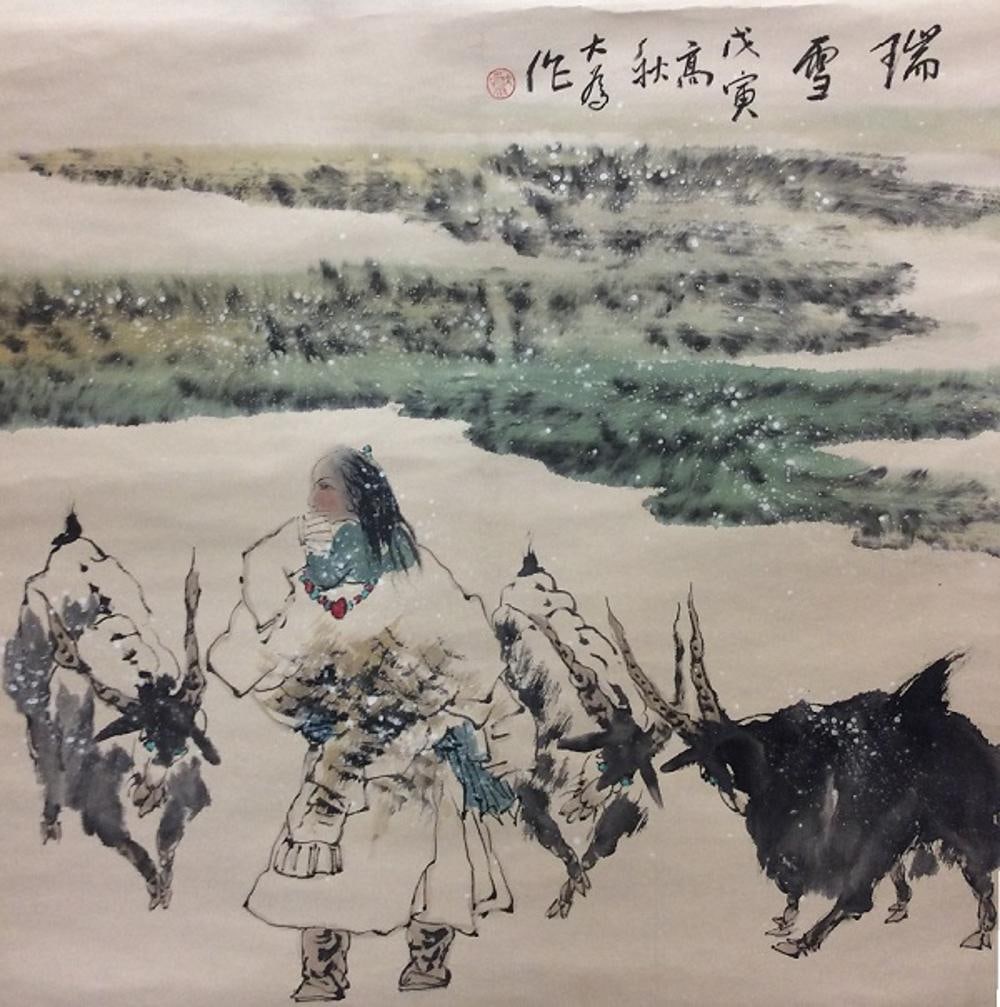 瑞雪
戊寅
高秋
大為
作